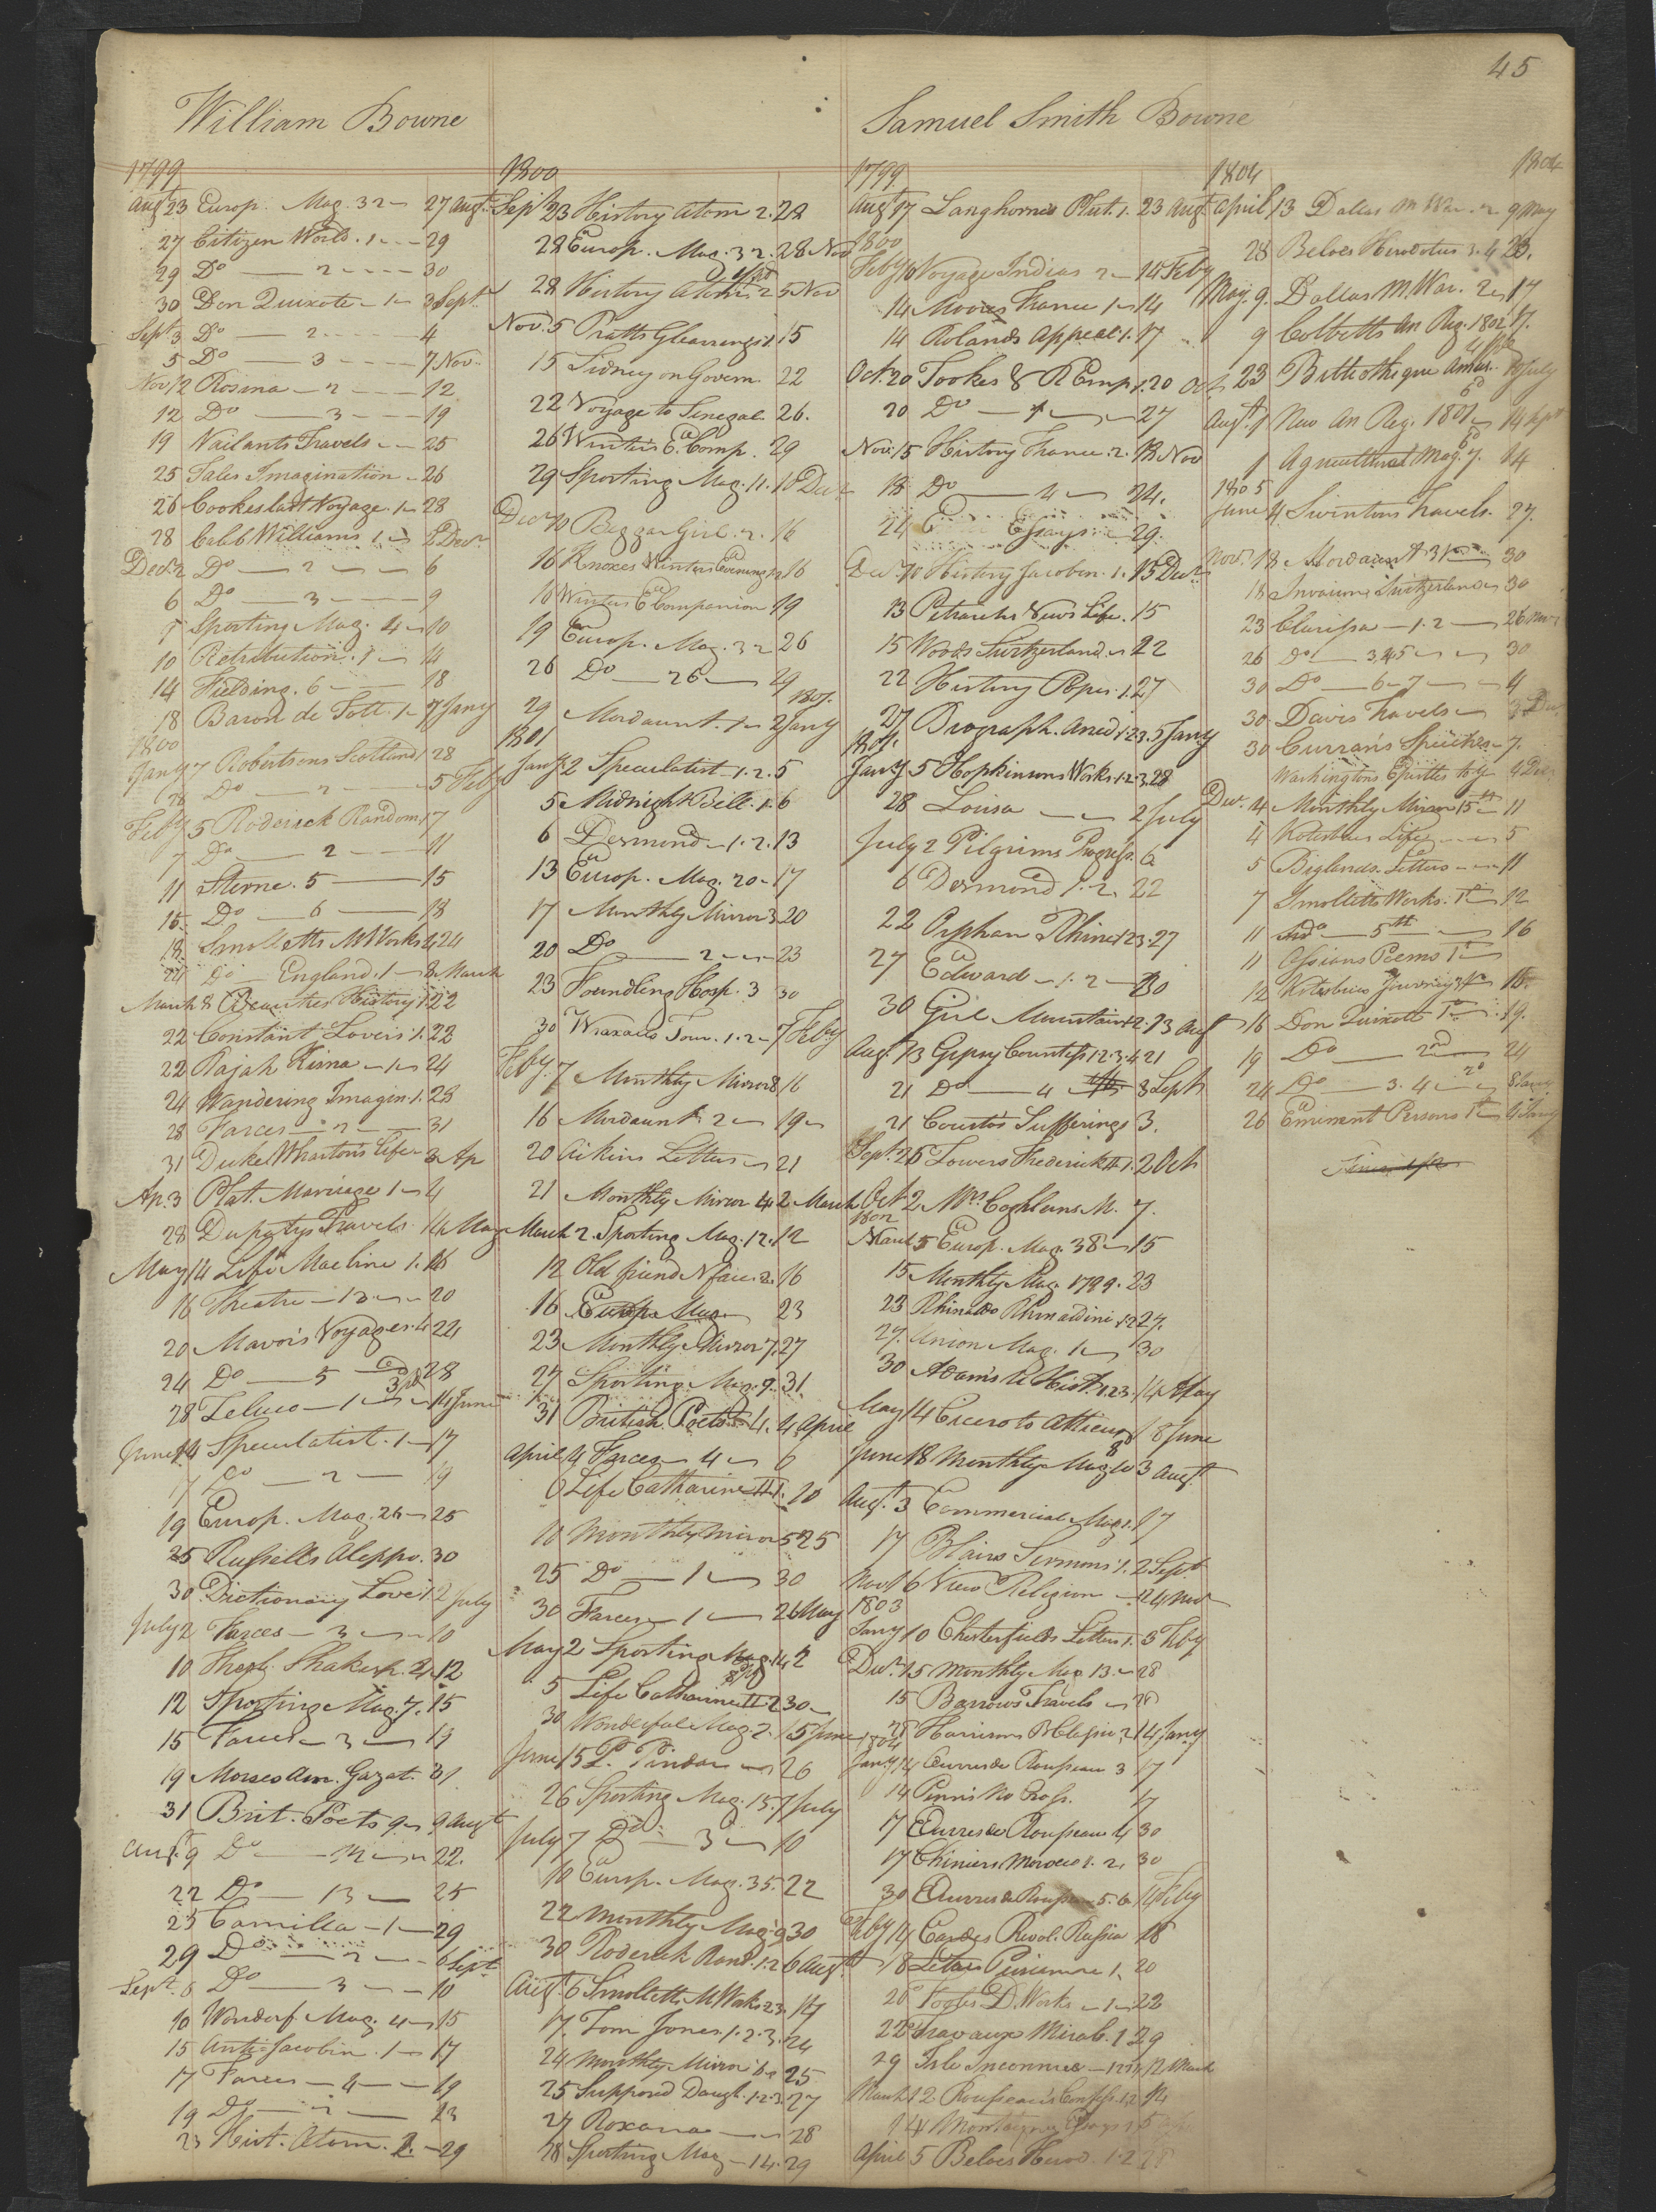 45
William Bowne
1799
Augt 23 Europ. Mag. 32 27 Augt
27 Citizen World. 1 29
29 Do 2 30
30 Don Quixote 1 3 Sept
Sept 3 Do 2 4
5 Do 3 7 Nov
Nov 12 Rosina 2 12
12 Do 3 19
19 Vailants Travels 25
25 Tales Imagination 26
26 Cookes last Voyage. 1 28
28 Caleb Williams 1 2 Decr
Decr 2 Do 2 6
6 Do 3 9
Sporting Mag. 4 10
10 Retribution. 1 14
14 Fielding. 6 18
18 Baron de Tott. 1 7 Jany
1800
Jany 7 Robertsons Scotland 1 28
28 Do 2 5 Feby
Feby 5 Roderick Random 1 7
7 Do 2 11
11 Sterne. 5 15
15 Do 6 18
18 Smolletts M Works 24
24 Do England. 1 8 March
March 8 Beauties History 1 22
22 Constant Lovers 1. 22
22 Rajah Kisna 1 24
24 Wandering Imagin. 1. 28
28 Farces 2 31
31 Duke Whartons Life 3 Ap
Ap. 3 Plat. Marriage 1 4
28 Dupatys Travels. 14 May
May 14 Life Macline 1. 16
16 Theatre 13 20
20 Mavors Voyages. 4 24
24 Do 5 28
28 Zeluco 1 14 June
June 14 Speculatist. 1 17
17 Do 2 19
19 Europ. Mag. 26 25
25 Russells Aleppo. 30
30 Dictionary Love 1 2 July
July 2 Farces 3 10
10 Theob. Shakesp. 2 12
12 Sporting Mag. 7. 15
15 Farces 3 19
19 Morses Am. Gazet. 31
31 Brit. Poets 9 9 Augt
Augt 9 Do 22
22 Do 13 25
25 Camilla 1 29
29 Do 2 6 Sept
Sept. 6 Do 3 10
10 Wonderf. Mag. 4 15
15 Anti-Jacobin. 1 17
17 Farces 4 19
19 Do 2 23
23 Hist. Atom. 2. 29
1800
Sept 23 History Atom 2. 28
28 Europ. Mag. 32. 28 Nov
28 History Atoms 2 5 Nov
Nov. 5 Pratts Gleanings 1. 15
15 Sidney on Governm. 22
22 Voyage to Senegal. 26.
26 Winters E. Comp. 29
29 Sporting Mag. 11. 10 Decr
Decr 10 Beggar Girl. 2. 16
16 Knoxes Winters Evenings 16
16 Winters E Companion 19
19 Europ. Mag. 32 26
26 Do 26 29
1801.
29 Mordaunt. 1 2 Jany
1801
Jany 2 Speculatist 1. 2. 5
5 Midnight Bell. 1. 6
6 Desmond 1. 2. 13
13 Europ. Mag. 20 17
17 Monthly Mirror 3 20
20 Do 2 23
23 Foundling Hosp. 3 30
30 Wraxalls Tour. 1. 2 7 Feby
Feby. 7 Monthly Mirror 8 16
16 Mordaunt 2 19
20 Aikins Letters 21
21 Monthly Mirror 4 2 March
March 2. Sporting Mag. 12. 12
12 Old friend N face. 2. 16
16 Europ. Mag 23
23 Monthly Mirror 7. 27
27 Sporting Mag. 9. 31.
31 British Poets 4. 4 April
April 4 Farces 4 6
6 Life Catharine II 1. 10
10 Monthly Mirror 5 25
25 Do 1 30
30 Farces 1 2 May
May 2 Sporting Mag. 14 2
5 Life Catharine II 2 30
30 Wonderful Mag. 2. 15 June
June 15 P. Pindar 26
26 Sporting Mag. 15. 7 July
July 7 Do 3 10
10 Europ. Mag. 35. 22
22 Monthly Mag. 9 30
30 Roderick Rand. 1. 2 6 Augt
Augt 6 Smolletts M Works 2 3. 17
17. Tom Jones. 1. 2. 3. 24
24 Monthly Mirror 6 25
25 Supposed Daugh. 1. 2. 3. 27
27 Roxana 28
28 Sporting Mag 14. 29
Samuel Smith Bowne
1799
Augt 17 Langhornes Plut. 1. 23 Augt
1800
Feby 10 Voyage Indias 2 14 Feby
14 Moores France 1 14
14 Rolands Appeal 1. 17
Octr. 20 Tookes R Emp 1. 20 Oct
20 Do 27
Nov. 15 History France. 2. 18 Nov
18 Do 4 24.
24 Essays 29.
Decr 10 History Jacobin. 1. 15 Decr
13 Petrarchs View Life. 15
15 Woods Switzerland 22
22 History Popes. 1. 27
27 Biograph. Anecd 1. 2 3. 5 Jany
1801.
Jany 5 Hopkinsons Works. 1. 2. 3. 28
28 Louisa 2 July
July 2 Pilgrims Progress. 6
6 Desmond 1. 2. 22
22 Orphan Rhine 1 2 3. 27
27 Edward 1. 2 30
30 Girl Mountains 1. 2. 13 Augt
Augt. 13 Gipsy Countess 1. 2. 3. 4. 21
21 Do 4 3 Sept
21 Courtos Sufferings 3.
Sept. 26 Towers Frederick II 1. 2 Oct
Oct 2 Mrs. Coghlans M. 7.
1802
March 5 Europ. Mag. 38 15
15 Monthly Mag. 1799. 23
23 Rhinaldo Rhinaldini 1 2 27.
27. Union Mag. 1 30
30 Adams R Hist. 1 2 3. 14 May
May 14 Cicero to Atticus 18 June
June 18 Monthly Mag. 10 3 Augt
Augt. 3 Commercial Mag. 1. 17
17 Blairs Sermons 1. 2 Sept
Nov. 16 View Religion 24 Nov
1803
Jany 10 Chesterfields Letters 1. 3 Feby
Decr. 15 Monthly Mag. 13. 28
15 Barrows Travels 28
28 Harrisons B Classics 2 14 Jany
1804
Jany 14 Œuvres de Rousseau 3 17
14 Penns No Cross. 17
17 Œuvres de Rousseau 4 30
17 Cheniers Morocco 1. 2. 30
30 Œuvres de Rousseau 5. 6 14 Feby
Feby 14 Cardes Revol. Russia 18
18 Letters Peruvienne 1. 20
20 Footes D. Works 1 22
22 Travaux Mirab. 1 29
29 Isle Inconnue 12 March
March 12 Rousseau's Confess. 1. 2 14
14 Montaignes Essays 1 5
April 5 Beloes Herod. 1. 2
1804
1804
April 13 Dallas M War. 2 9 May
28 Beloes Herodotus 3. 4 23.
May. 9. Dallas M. War. 2 17
9 Cobbetts An Reg. 1802 17.
23 Bibliotheque Amus. 10 July
Augt. 1 New An Reg. 1801 14 Sept
1 Agricultural Mag. 7. 14
1805
June 4 Swintons Travels. 27.
Nov. 18. Mordaunt 3 30
18 Invasion Switzerland 30
23 Clarissa 1. 2 26 Nov
26 Do 3, 4, 5 30
30 Do 6 7 4
30 Davis Travels 3 Dec
30 Currans Speeches 7.
Washingtons Epistles 4 Dec
Decr. 4 Monthly Mirror 15th 11
4 Kotzebues Life 5
5 Biglands Letters 11
7 Smolletts Works. 1st 12
11 Do 5th 16
11 Ossians Poems 1st
12 Kotzebues Journey 16
16 Don Quixott 1st 19.
19 Do 2nd 24
24 Do 3. 4 8 Jany
26 Eminent Persons 1st 4 Jany